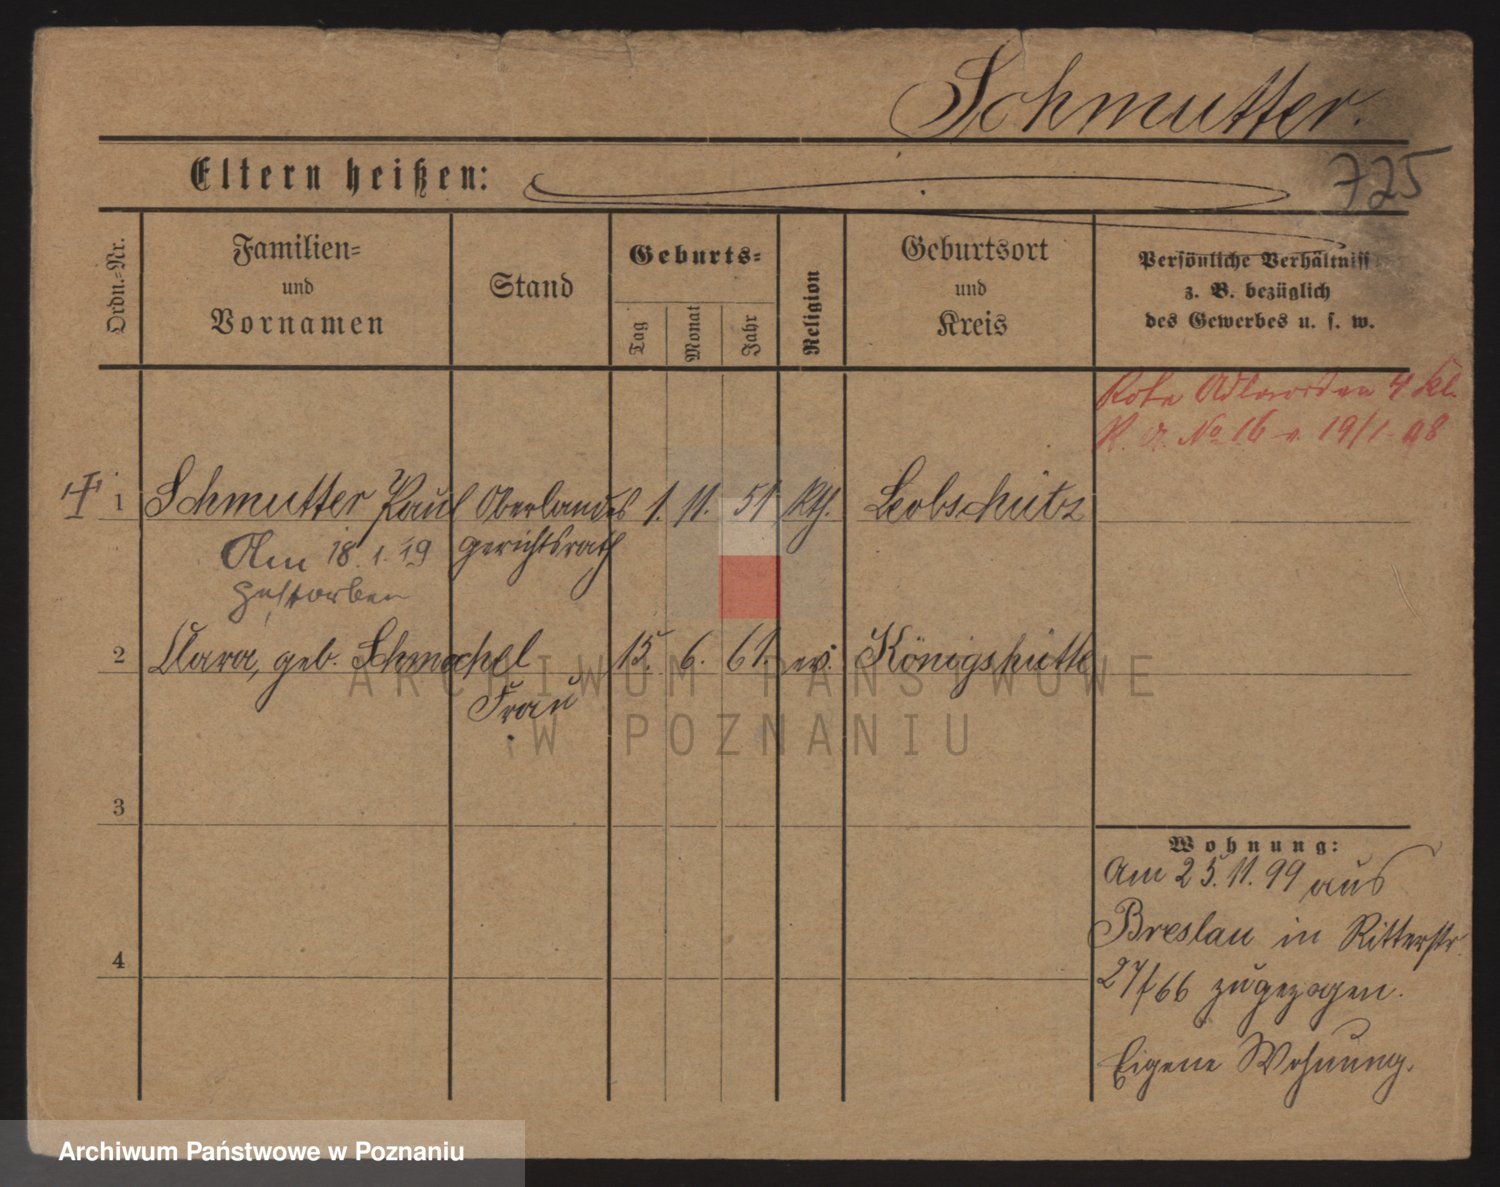 Schmutter.
725
Eltern heißen:
Ordn.-Nr.
Familien-
und
Vornamen
Stand
Geburts-
Tag
Monat
Jahr
Religion
Geburtsort
und
Kreis
Persönliche Verhältniss
z. B. bezüglich
des Gewerbes u. s. w.
Rote Adlerorden 4 Kl.
No 16 v. 19/1. 98
1 Schmutter Paul Oberlandes 1. 11. 51 kth. Leobschütz
gerichtsrath
Am 18. 1. 19
gestorben
2 Clara, geb. Schmachel 15. 6. 61. ev. Königshütte
Frau
3
4
Wohnung:
Am 25. 11. 99 aus
Breslau in Ritterstr.
27/66 zugezogen.
Eigene Wohnung.
ARCHIWUM PAŃSTWOWE
W POZNANIU
Archiwum Państwowe w Poznaniu